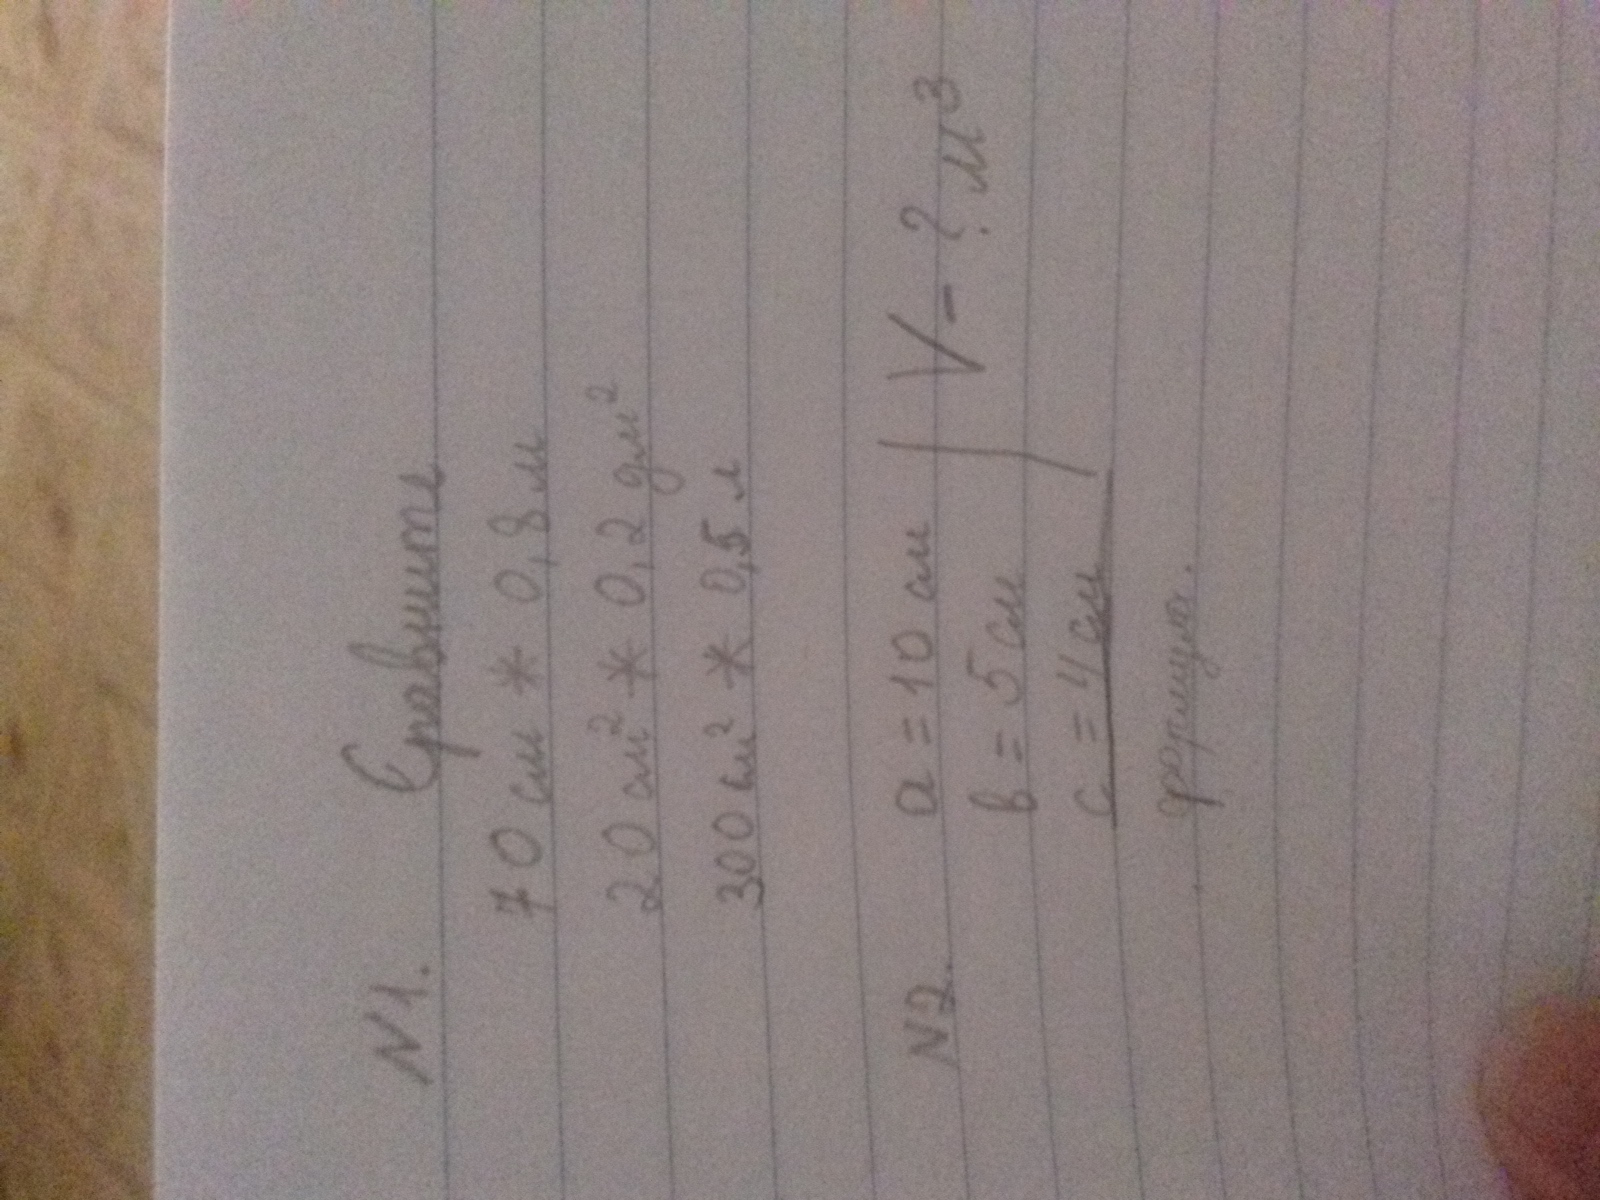 N1. Сравнить
70 см * 0,8 м
20 см² * 0,2 дм²
300 см² * 0,5 л
N2. a = 10 см | V - ? м³
в = 5 см
c = 4 см
формула.